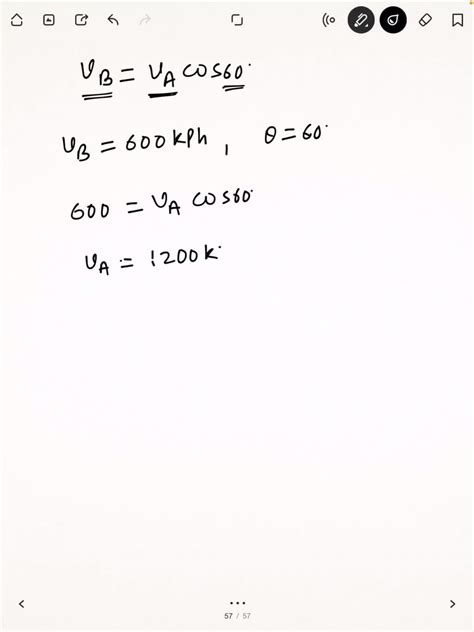 υ_B = υ_A cos60°
υ_B = 600 kph, θ = 60°
600 = υ_A cos60°
υ_A = 1200 k.
57 / 57